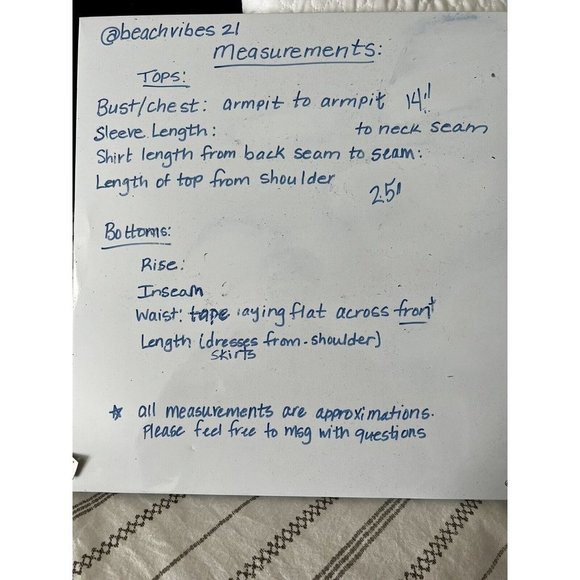 @beachvibes 21
Measurements:
Tops:
Bust/chest: armpit to armpit 14"
Sleeve Length: to neck seam
Shirt length from back seam to seam:
Length of top from shoulder
25"
Bottoms:
Rise:
Inseam
Waist: tape laying flat across front
Length (dresses from-shoulder)
skirts
☆ all measurements are approximations.
Please feel free to msg with questions